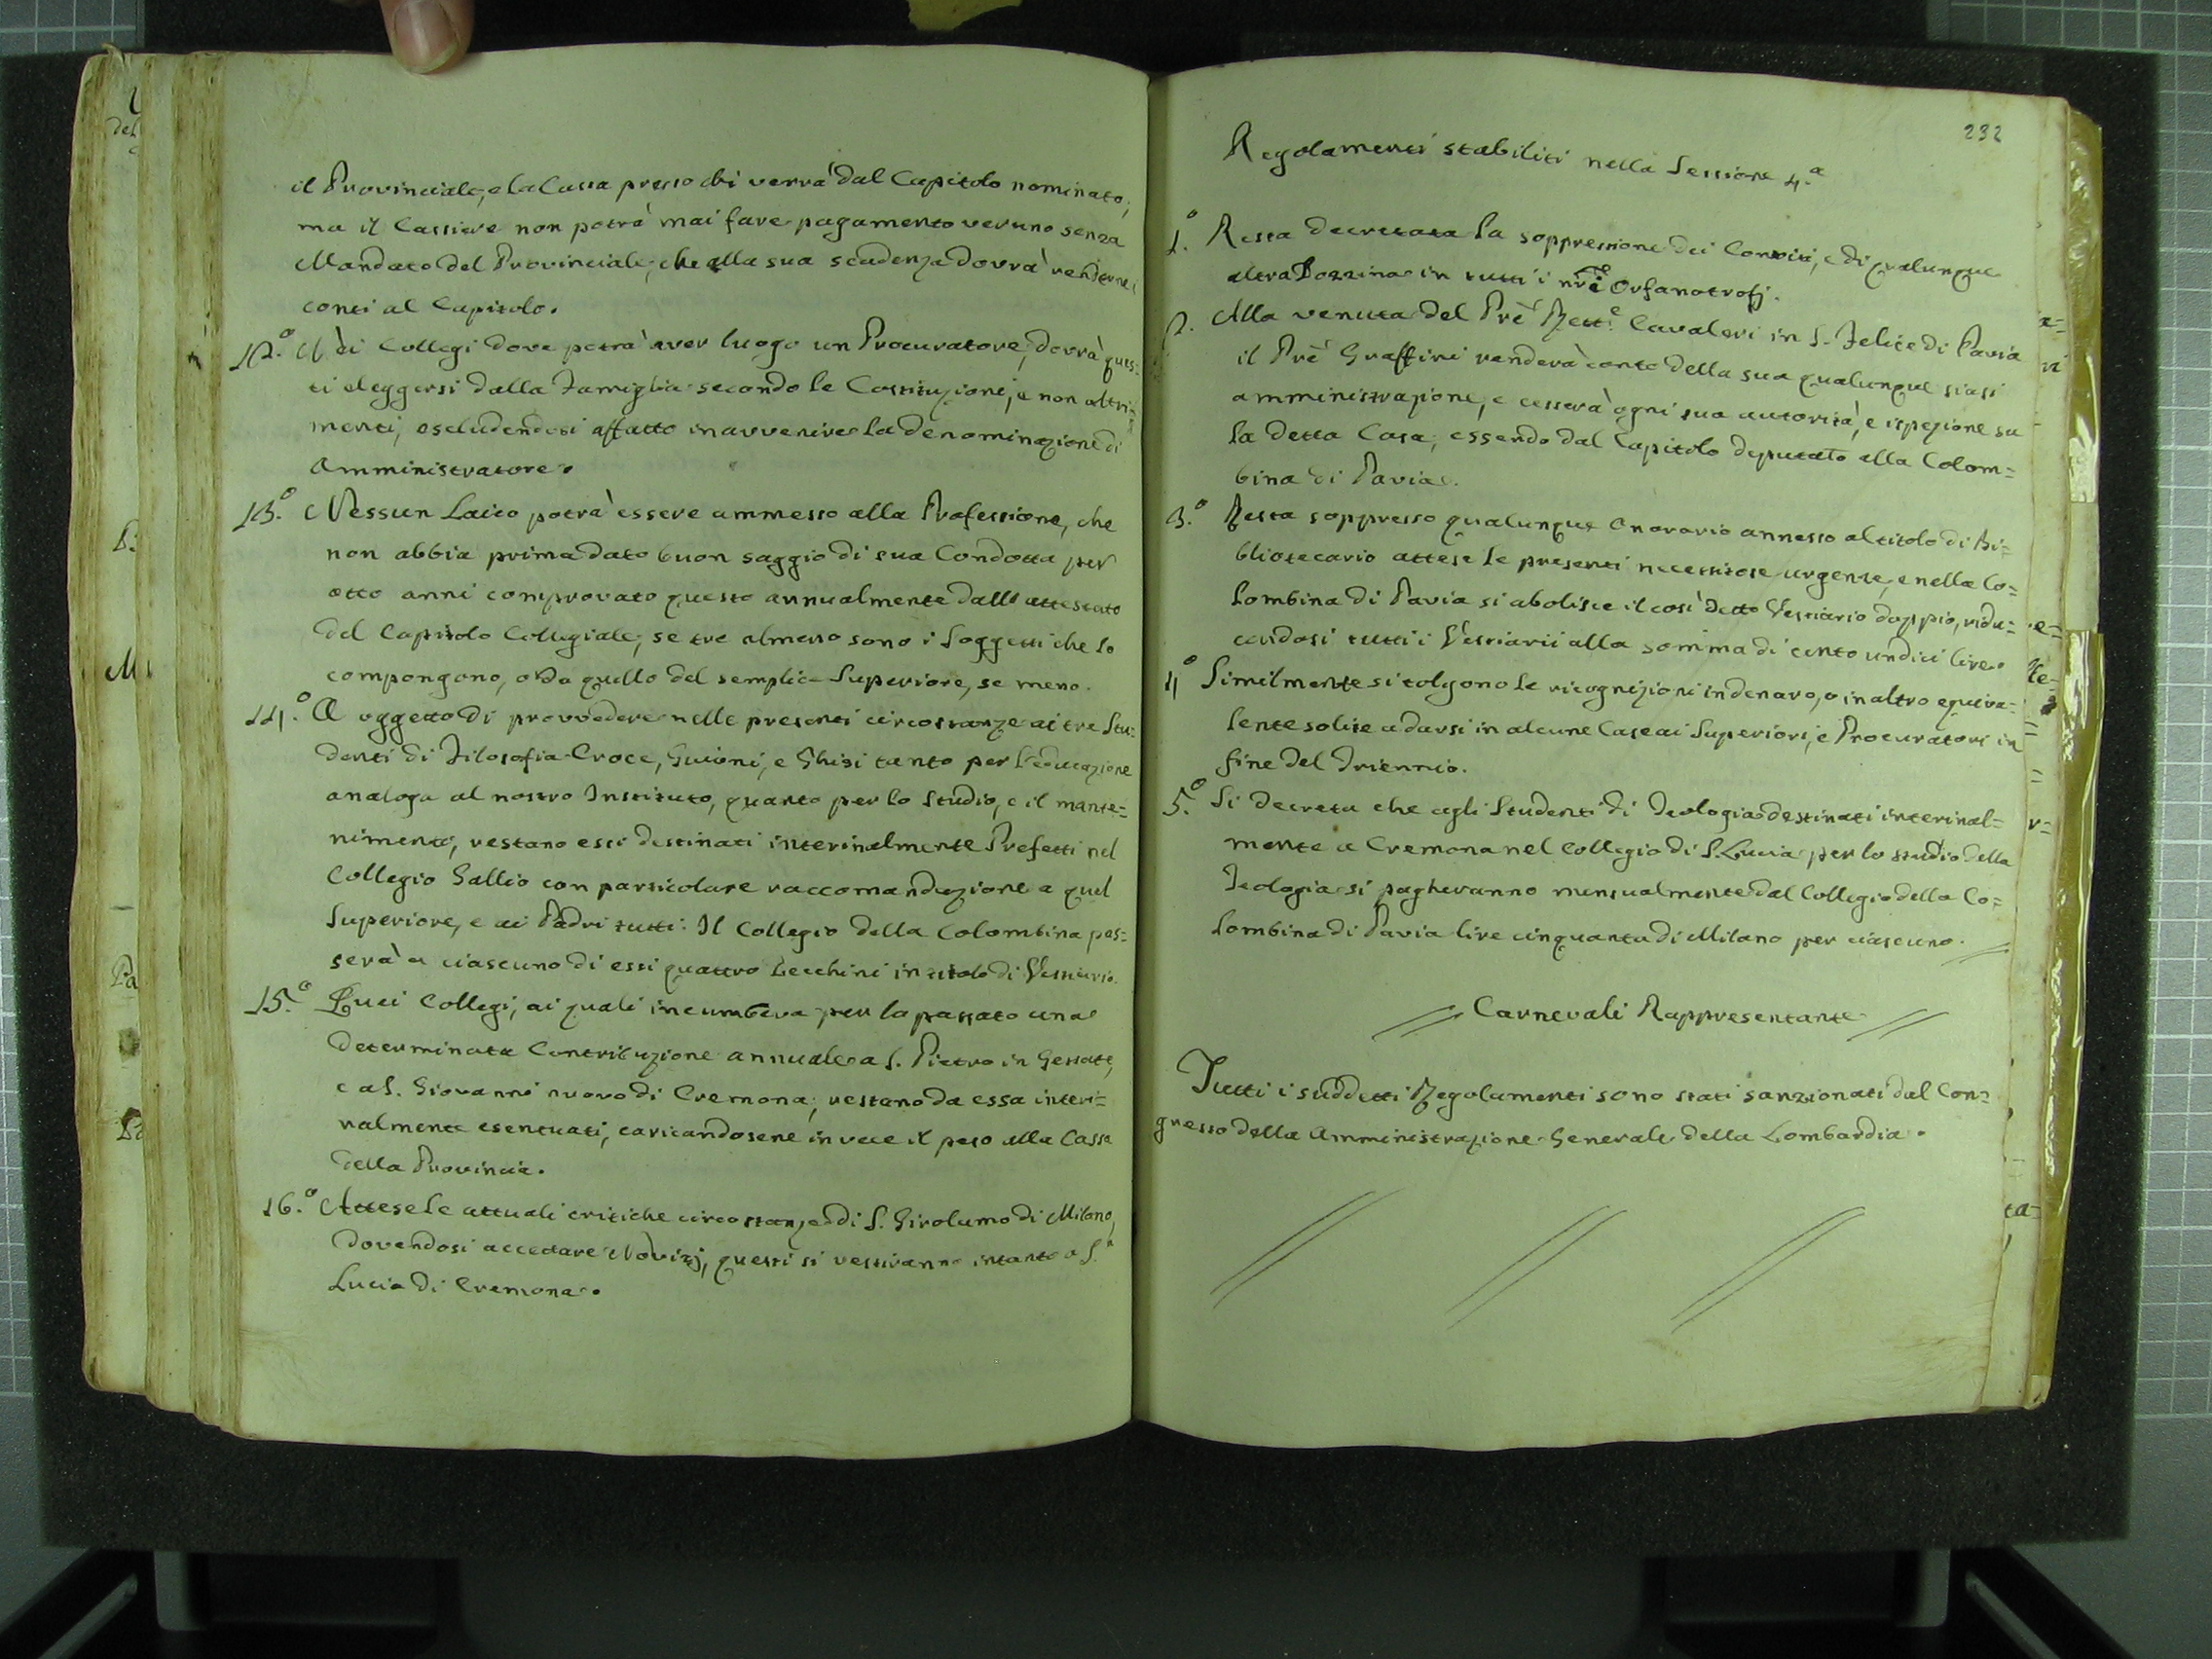 il Provinciale, e la Cassa presso chi verrà dal Capitolo nominato,
ma il Cassiere non potrà mai fare pagamento veruno senza
Mandato del Provinciale, che alla sua scadenza dovrà renderne
conti al Capitolo.
12.° Nei Collegi dove potrà aver luogo un Procuratore, dovrà ques=
ti eleggersi dalla Famiglia secondo le Costituzioni, e non altri=
menti, escludendosi affatto in avvenire la denominazione di
Amministratore.
13.° Nessun Laico potrà essere ammesso alla Professione, che
non abbia prima dato buon saggio di sua Condotta per
otto anni comprovato questo annualmente dall' attestato
del Capitolo Collegiale, se tre almeno sono i Soggetti che lo
compongono, o da quello del semplice Superiore, se meno.
14.° A oggetto di provvedere nelle presenti circostanze ai tre Stu=
denti di Filosofia Croce, Guioni, e Ghisi tanto per l'educazione
analoga al nostro Instituto, quanto per lo Studio, e il mante=
nimento, restano essi destinati interinalmente Prefetti nel
Collegio Gallio con particolare raccomandazione a quel
Superiore, e ai Padri tutti: Il Collegio della Colombina pas=
serà a ciascuno di essi quattro Zecchini in titolo di Vestiario.
15.° Quei Collegi, ai quali incumbeva per lo passato una
determinata Contribuzione annuale a S. Pietro in Gessate,
e a S. Giovanni nuovo di Cremona, restano da essa interi=
nalmente esentuati, caricandosene in vece il peso alla Cassa
della Provincia.
16.° Attese le attuali critiche circostanze di S. Girolamo di Milano,
dovendosi accettare Novizj, questi si vestiranno intanto a S.ª
Lucia di Cremona.
232
Regolamenti stabiliti nella Sessione 4.ª
1.° Resta decretata la soppressione dei Convitti, e di qualunque
altra Dozzina in tutti i nri Orfanotrofj.
2. Alla venuta del Prē Rett.e Cavaleri in S. Felice di Pavia
il Prē Graffini renderà conto della sua qualunque siasi
amministrazione, e cesserà ogni sua autorità, e ispezione su
la detta Casa, essendo dal Capitolo deputato alla Colom=
bina di Pavia.
3.° Resta soppresso qualunque Onorario annesso al titolo di Bi=
bliotecario attese le presenti necessitose urgenze, e nella Co=
lombina di Pavia si abolisce il così detto Vestiario doppio, ridu=
cendosi tutti i Vestiarii alla somma di cento undici lire.
4° Similmente si tolgono le ricognizioni in denaro, o in altro equiva=
lente solite a darsi in alcune Case ai Superiori, e Procuratori in
fine del Triennio.
5.° Si decreta che agli Studenti di Teologia destinati interinal=
mente a Cremona nel Collegio di S. Lucia per lo studio della
Teologia si pagheranno mensualmente dal Collegio della Co=
lombina di Pavia lire cinquanta di Milano per ciascuno.
Carnevali Rappresentante
Tutti i suddetti Regolamenti sono stati sanzionati dal Con=
gresso della Amministrazione Generale della Lombardia.